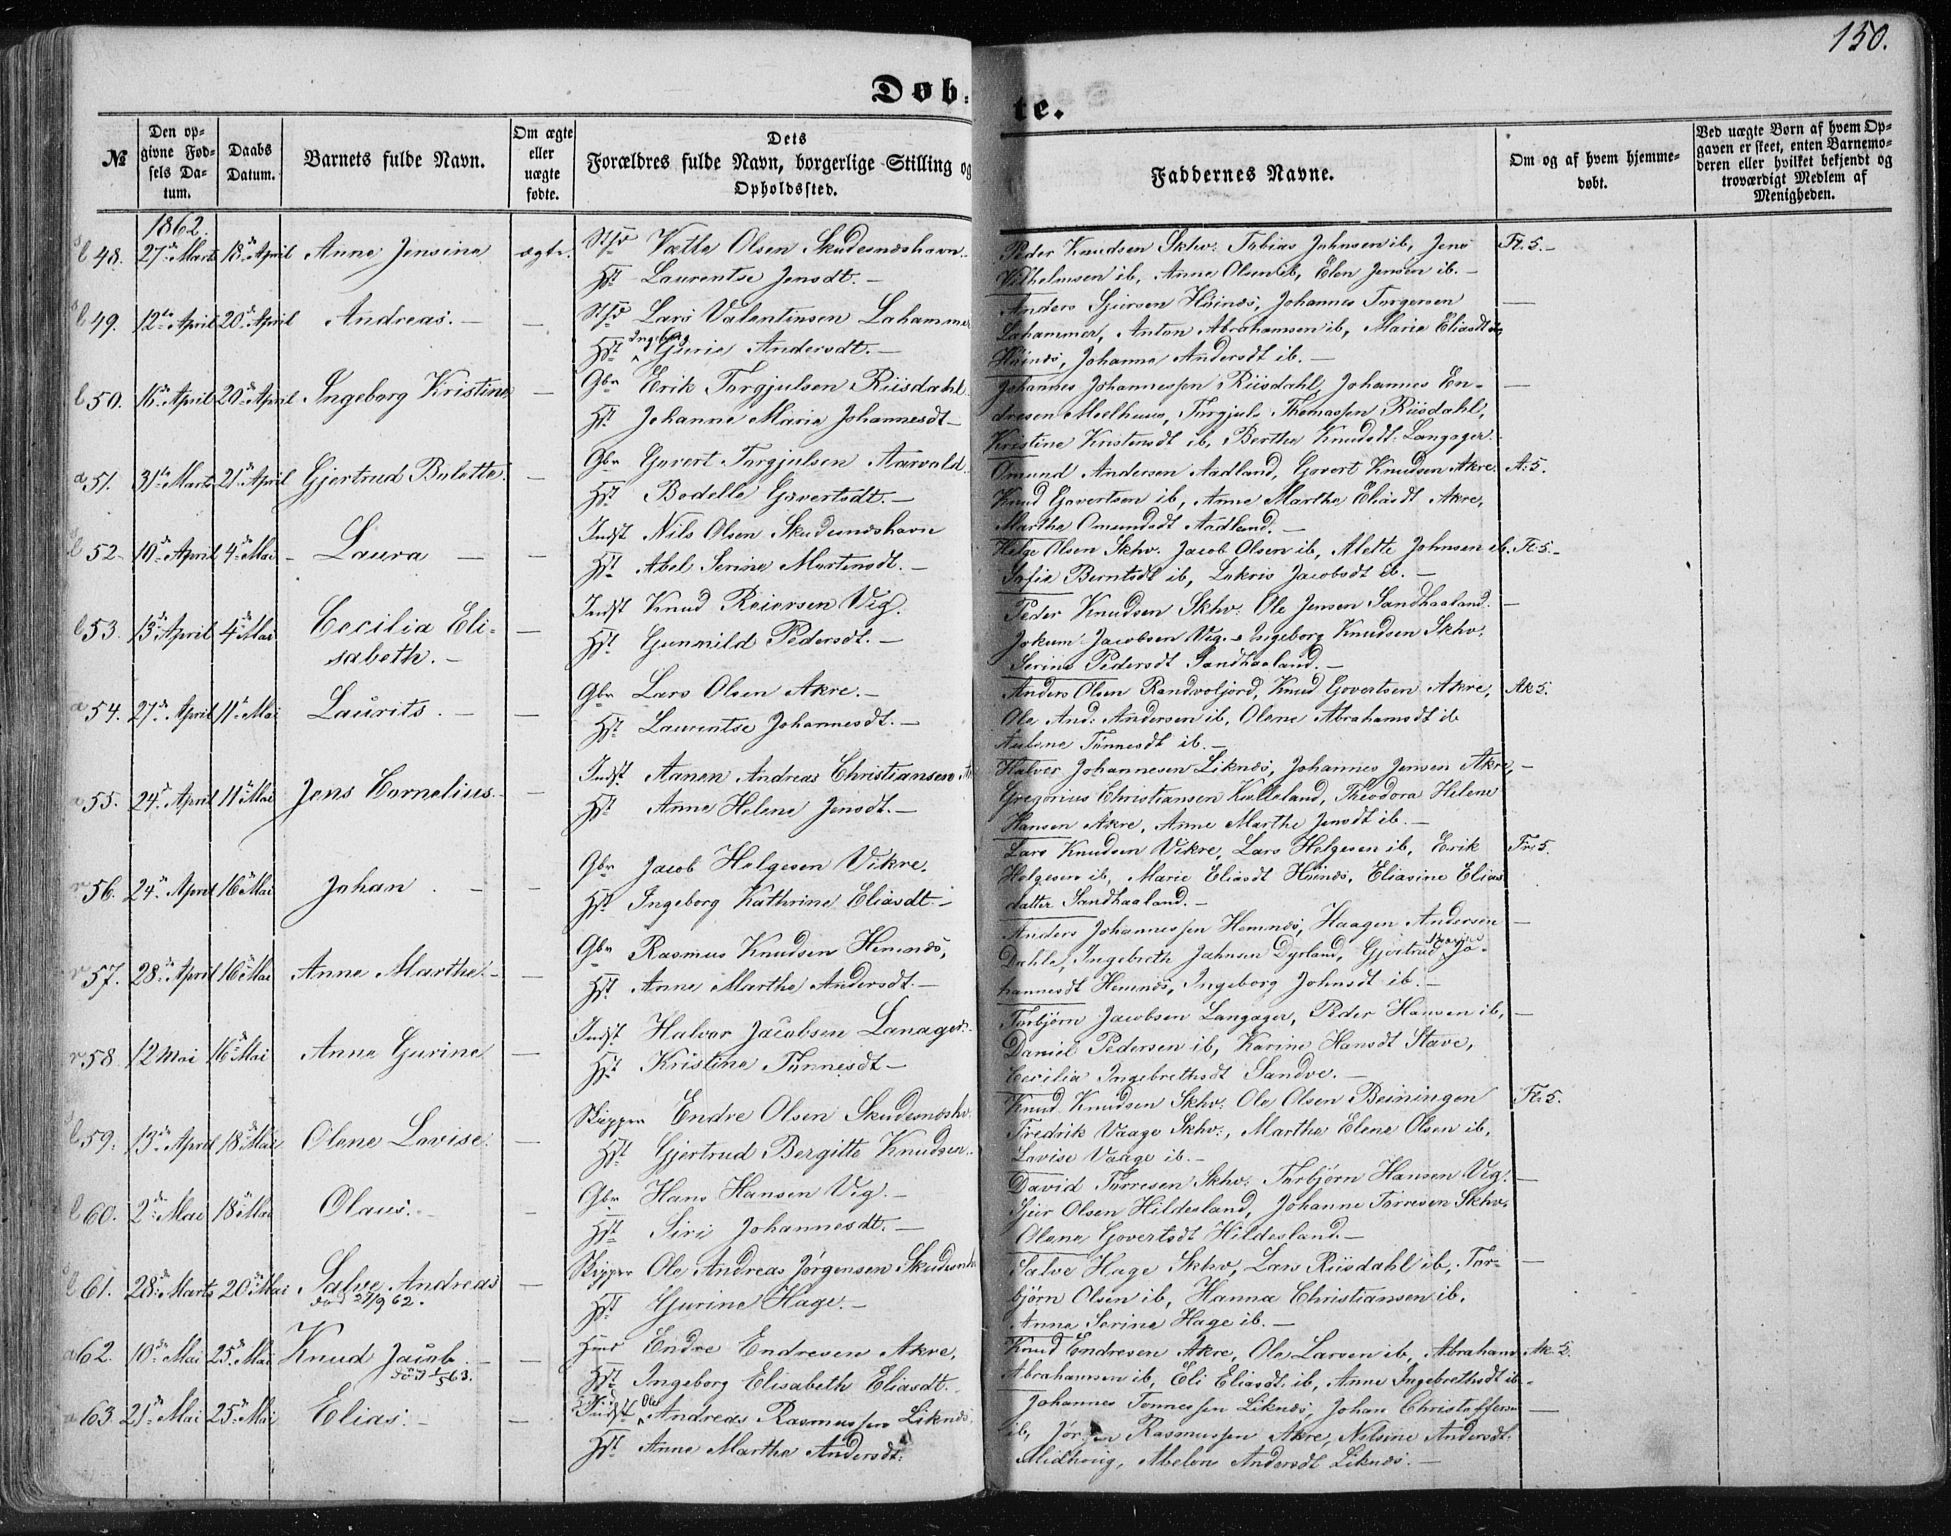 150.
Døb-
te.
№
Den op-
givne Fød-
sels Da-
tum.
Daabs
Datum.
Barnets fulde Navn.
Om ægte
eller
uægte
fødte.
Dets
Forældres fulde Navn, borgerlige Stilling og
Opholdssted.
Faddernes Navne.
Om og af hvem hjemme-
døbt.
Ved uægte Børn af hvem Op-
gaven er skeet, enten Barnemo-
deren eller hvilket bekjendt og
troværdigt Medlem af
Menigheden.
1862.
48. 27de Marts 18de April Anne Jensine ægte. Vætte Olsen Skudesnæshavn.
Hst Laurentse Jensdt. —
Peder Knudsen Skhv: Tobias Johnsen ib, Jens Ft. 5. —
Vilhelmsen ib, Anne Olsen ib, Elen Jensen ib. —
49. 12te April 20de April Andreas. — — Lars Valentinsen Lahammer
Hst Ingeborg Gurie Andersdt. —
Anders Sjursen Høinæs, Johannes Torgersen —
Lahammer, Anton Abrahamsen ib, Marie Eliasdt
Høinæs, Johanne Andersdt ib. —
50. 16de April 20de April Ingeborg Kristine — Gbr Erik Torgjulsen Riisdahl
Hst Johanne Marie Johannesdt —
Johannes Johannessen Riisdahl, Johannes En- —
dresen Meelhuus, Torgjuls Thomassen Riisdahl,
Kristine Knutsdt ib, Berthe Knudsdt: Langager.
51. 31te Marts 21de April Gjertrud Bolette. — Gbr Govert Torgjulsen Aarvald.
Hst Bodelle Govertsdt. —
Omund Andersen Aadland, Govert Knudsen Akre. A. 5.
Knud Govertsen ib, Anne Marthe Eliasdt Akre,
Marthe Omundsdt Aadland. —
52. 10de April 4de Mai Laura — — Indst Nils Olsen Skudesnæshavn
Hst Abel Serine Martensdt. —
Helge Olsen Skhv. Jacob Olsen ib, Alette Johnsen ib. Ft. 5. —
Sofie Berntsdt ib, Lukris Jacobsdt ib. —
53. 13de April 4de Mai Cecilia Eli-
sabeth. — — Indst Knud Reiersen Vig.
Hst Gunnild Pedersdt. —
Peder Knudsen Skhv: Ole Jensen Sandhaaland. —
Jokum Jacobsen Vig. Ingeborg Knudsen Skhv:
Serine Pedersdt Sandhaaland. —
54. 27de April 11te Mai Laurits. — — Gbr Lars Olsen Akre. —
Hst Laurentse Johannesdt. —
Anders Olsen Randvoljord, Knud Govertsen Akre, Ak 5.
Ole And: Andersen ib, Olene Abrahamsdt ib
Aulene Tønnesdt ib. —
55. 24de April 11te Mai Jens Cornelius. — — Indst Aanen Andreas Christiansen
Hst Anne Helene Jensdt. —
Halver Johannesen Liknæs, Johannes Jensen Akre, —
Gregorius Christiansen Kulleland, Theodora Helene
Hansen Akre, Anne Marthe Jensdt ib. —
56. 24de April 16de Mai Johan. — — Gbr Jacob Helgesen Vikre.
Hst Ingeborg Kathrine Eliasdt. —
Lars Knudsen Vikre, Lars Helgesen ib, Erik Fr. 5.
Helgesen ib, Marie Eliasdt Høinæs, Eliasine Elias-
datter Sandhaaland. —
57. 28de April 16de Mai Anne Marthe. — — Gbr Rasmus Knudsen Hemnæs,
Hst Anne Marthe Andersdt. —
Anders Johannessen Hemnæs, Haagen Andersen —
Dahle, Ingebreth Johnsen Dyrland, Gjertrud Jo-
hannesdt Hemnæs, Ingeborg Johnsdt ib. —
58. 12 Mai 16de Mai Anne Gurine — Indst Halvor Jacobsen Lanager. —
Hst Kristine Tønnesdt —
Torbjørn Jacobsen Langager, Peder Hansen ib, —
Daniel Pedersen ib, Karine Hansdt Stave,
Cecilia Ingebrethsdt Sandve. —
59. 13de April 18de Mai Olene Lovise. — Skipper Endre Olsen Skudesnæshv.
Hst Gjertrud Bergitte Knudsen.
Knud Knudsen Skhv: Ole Olsen Beiningen Ft. 5.
Fredrik Vaage Skhv:, Marthe Elene Olsen ib,
Lovise Vaage ib. —
60. 2de Mai 18de Mai Olaus. — — Gbr Hans Hansen Vig. —
Hst Siri Johannesdt. —
David Tørresen Skhv: Torbjørn Hansen Vig. —
Sjur Olsen Hildesland, Johanne Tørresen Skhv.
Olene Govertsdt Hildesland. —
61. 28de Marts 20de Mai Salve Andreas
død 27/9 62. — Skipper Ole Andreas Jørgensen Skudesnæs
Hst Gurine Hage. —
Salve Hage Skhv, Lars Riisdahl ib, Tor- —
bjørn Olsen ib, Hanna Christiansen ib,
Anne Serine Hage ib. —
62. 10de Mai 25de Mai Knud Jacob
død 1/5 63. — Endre Endresen Akre.
Hst Ingeborg Elisabeth Eliasdt.
Knud Endresen Akre, Ole Larsen ib, Abraham Ak. 5.
Abrahamsen ib, Eli Eliasdt: ib, Anne Ingebrethsdt ib.
63. 21de Mai 25de Mai Elias. — — Indst Ole Andreas Rasmussen Liknæs
Hst Anne Marthe Andersdt:
Johannes Tønnessen Liknæs, Johan Christoffersen —
ib, Jørgen Rasmussen Akre, Nilsine Andersdt:
Midhovig, Abelone Andersdt Liknæs. —